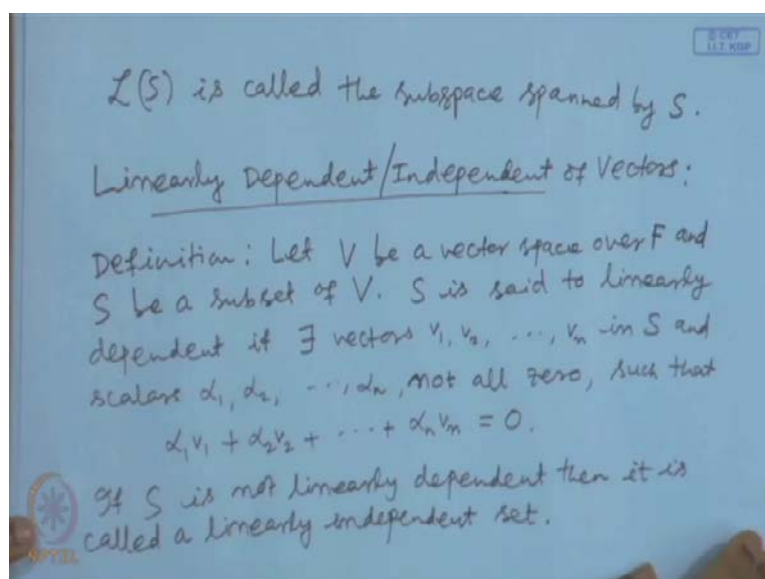 © CET
I.I.T. KGP
L(S) is called the subspace spanned by S.
Linearly Dependent/Independent of Vectors:
Definition: Let V be a vector space over F and
S be a subset of V. S is said to linearly
dependent if ∃ vectors v₁, v₂, ..., vₙ in S and
scalars α₁, α₂, ..., αₙ, not all zero, such that
α₁v₁ + α₂v₂ + ... + αₙvₙ = 0.
If S is not linearly dependent then it is
called a linearly independent set.
NPTEL